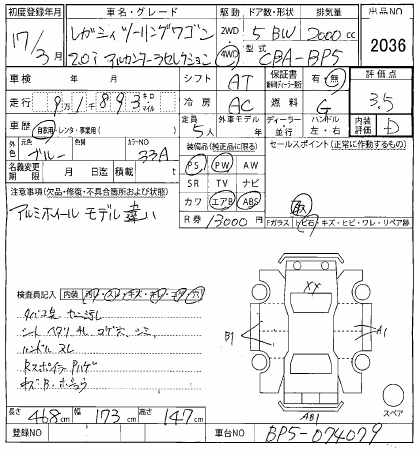 初度登録年月 車名・グレード 駆動 ドア数・形状 排気量 出品NO
17/3月 レガシィツーリングワゴン 2WD 5 BW 2000cc 2036
2.0i アルカンターラセレクション 4WD 型式 CBA-BP5
車検 年 月 シフト AT 保証書 有・無 評価点
走行 9万1893 キロ マイル 冷房 AC 燃料 G 3.5
車歴 自家用・レンタ・事業用( ) 定員 5人 外車モデル 年 ディーラー 並行 ハンドル 左・右 内装評価 D
外色 元色 ブルー 色替 カラーNO 33A
装備品(純正品に限る) セールスポイント(正常に作動するもの)
名義変更期限 月 日迄 積載 t
PS PW AW
SR TV ナビ
カワ エアB ABS
R券 13000円
注意事項(欠品・修復・不具合箇所および状態)
アルミホイール モデル違い
Fガラス 飛び石・キズ・ヒビ・ワレ・リペア跡
検査員記入 内装
タバコ臭
シート ヘタリ コゲ穴 シミ
ハンドル スレ
Rスポイラー Pハゲ
XX
B1
A1
AB1
スペア
長さ 468cm 幅 173cm 高さ 147cm
登録NO 車台NO BP5-074079